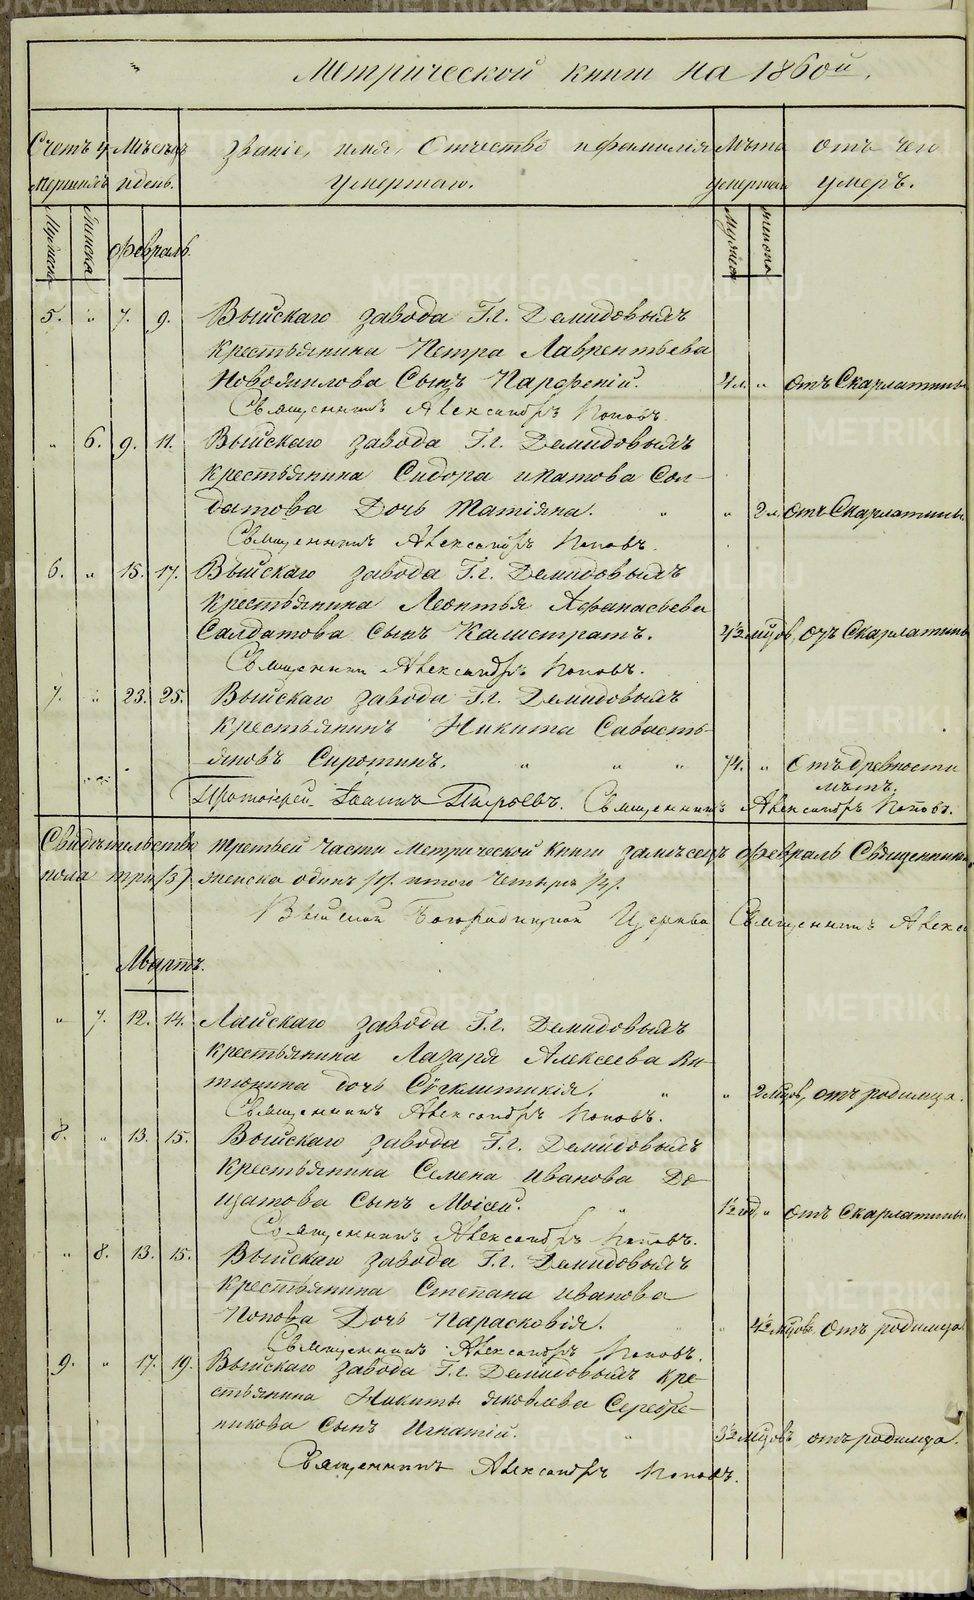 Метрической книги на 1860й.
Счетъ у- Мѣсяцъ Званіе, имя, Отчество и фамилія Лѣта отъ чего
мершихъ и день. умершаго. умершаго умеръ.
Мужеска Женска Февраль. Мужеска женска
5. " 7. 9. Выйскаго завода Г.г. Демидовыхъ
крестьянина Петра Лаврентьева
Новожилова Сынъ Парфеній. 4 л. " отъ Скарлатины
Священникъ Александръ Поповъ.
" 6. 9. 11. Выйскаго завода Г.г. Демидовыхъ
крестьянина Сидора Ипатова Сол-
датова Дочь Татіяна. " " 2 л. отъ Скарлатины.
Священникъ Александръ Поповъ.
6. " 15. 17. Выйскаго завода Г.г. Демидовыхъ
крестьянина Леонтья Афанасьева
Салдатова сынъ Калистратъ. 4½ мцовъ, отъ Скарлатины
Священникъ Александръ Поповъ.
7. " 23. 25. Выйскаго завода Г.г. Демидовыхъ
крестьянинъ Никита Савасть-
яновъ Сиротинъ. " " " 74. " Отъ древности
лѣтъ.
Протоіерей Іоаннъ Священникъ Александръ Поповъ.
Свидѣтельство третьей части Метрической книги за мѣсяцъ Февраль Священникъ
пола три /3/ женска одинъ /1/. итого четыре /4/.
Выйской Богородицкой Церкви Священникъ Алекса
Мартъ.
" 7. 12. 14. Лайскаго завода Г.г. Демидовыхъ
крестьянина Лазаря Алексеева Ви-
тюнина дочь " " 2 мцовъ, отъ родимца.
Священникъ Александръ Поповъ.
8. " 13. 15. Выйскаго завода Г.г. Демидовыхъ
крестьянина Семена Иванова До-
щатова сынъ Моисей. " 1½ год. " отъ Скарлатины
Священникъ Александръ Поповъ.
" 8. 13. 15. Выйскаго завода Г.г. Демидовыхъ
крестьянина Степана Иванова
Попова Дочь Парасковія. " 4½ мцовъ, Отъ родимца
Священникъ Александръ Поповъ.
9. " 17. 19. Выйскаго завода Г.г. Демидовыхъ кре-
стьянина Никиты Яковлева Серебре-
никова сынъ Игнатій. " 3½ мцовъ отъ родимца.
Священникъ Александръ Поповъ.
METRIKI.GASO-URAL.RU